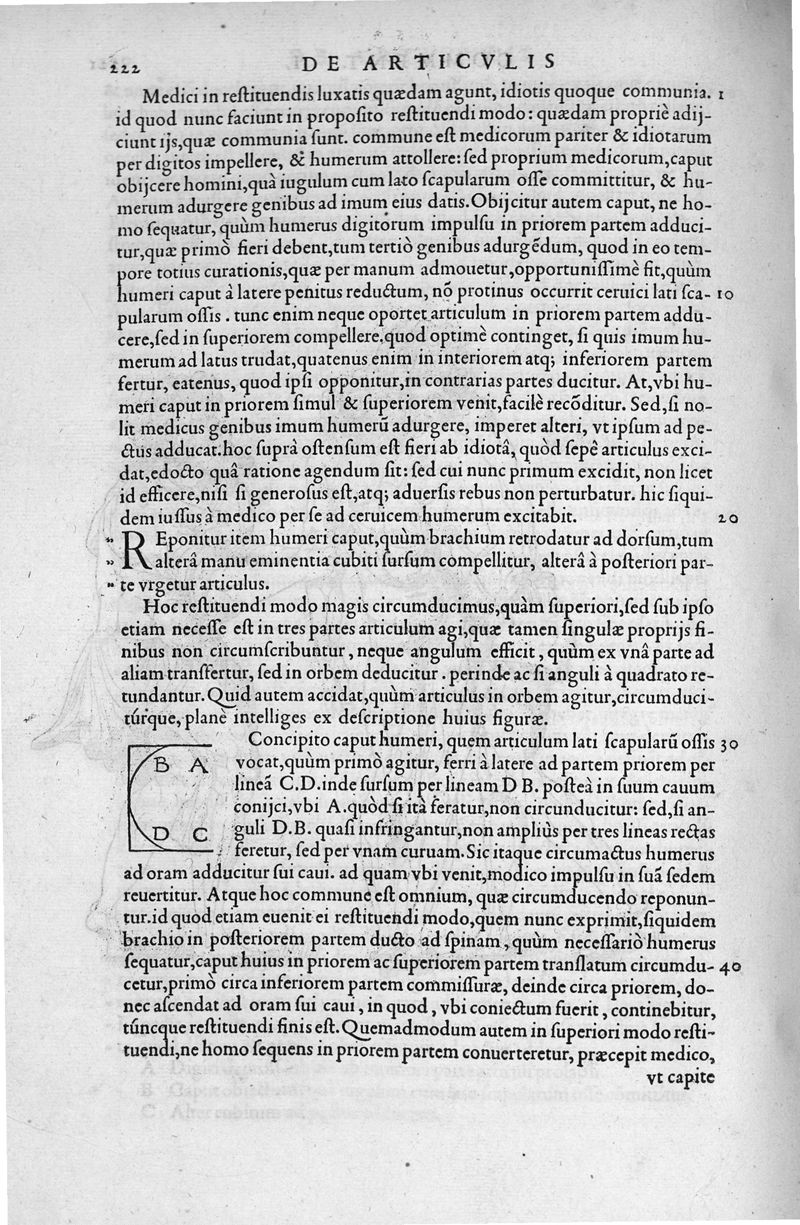 222 DE ARTICVLIS
Medici in reſtituendis luxatis quædam agunt, idiotis quoque communia. 1
id quod nunc faciunt in propoſito reſtituendi modo: quædam propriè adij-
ciunt ijs, quæ communia ſunt. commune eſt medicorum pariter & idiotarum
per digitos impellere, & humerum attollere: ſed proprium medicorum, caput
obijcere homini, quà iugulum cum lato ſcapularum oſſe committitur, & hu-
merum adurgere genibus ad imum eius datis. Obijcitur autem caput, ne ho-
mo ſequatur, quùm humerus digitorum impulſu in priorem partem adduci-
tur, quæ primò fieri debent, tum tertiò genibus adurgẽdum, quod in eo tem-
pore totius curationis, quæ per manum admouetur, opportuniſſimè fit, quùm
humeri caput à latere penitus reductum, nõ protinus occurrit ceruici lati ſca- 10
pularum oſſis. tunc enim neque oportet articulum in priorem partem addu-
cere, ſed in ſuperiorem compellere, quod optimè continget, ſi quis imum hu-
merum ad latus trudat, quatenus enim in interiorem atq; inferiorem partem
fertur, eatenus, quod ipſi opponitur, in contrarias partes ducitur. At, vbi hu-
meri caput in priorem ſimul & ſuperiorem venit, facilè recõditur. Sed, ſi no-
lit medicus genibus imum humerũ adurgere, imperet alteri, vt ipſum ad pe-
ctus adducat. hoc ſuprà oſtenſum eſt fieri ab idiotâ, quòd ſepè articulus exci-
dat, edocto quâ ratione agendum ſit: ſed cui nunc primum excidit, non licet
id efficere, niſi ſi generoſus eſt, atq; aduerſis rebus non perturbatur. hic ſiqui-
dem iuſſus à medico per ſe ad ceruicem humerum excitabit. 20
„ REponitur item humeri caput, quùm brachium retrodatur ad dorſum, tum
„ alterâ manu eminentia cubiti ſurſum compellitur, alterâ à poſteriori par-
„ te vrgetur articulus.
Hoc reſtituendi modo magis circumducimus, quàm ſuperiori, ſed ſub ipſo
etiam neceſſe eſt in tres partes articulum agi, quæ tamen ſingulæ proprijs fi-
nibus non circumſcribuntur, neque angulum efficit, quùm ex vnâ parte ad
aliam transfertur, ſed in orbem deducitur. perinde ac ſi anguli à quadrato re-
tundantur. Quid autem accidat, quùm articulus in orbem agitur, circumduci-
túrque, planè intelliges ex deſcriptione huius figuræ.
Concipito caput humeri, quem articulum lati ſcapularũ oſſis 30
vocat, quùm primò agitur, ferri à latere ad partem priorem per
lineã C.D. inde ſurſum per lineam D B. poſteà in ſuum cauum
conijci, vbi A. quòd ſi ità feratur, non circunducitur: ſed, ſi an-
guli D.B. quaſi infringantur, non ampliùs per tres lineas rectas
feretur, ſed per vnam curuam. Sic itaque circumactus humerus
B A
D C
ad oram adducitur ſui caui. ad quam vbi venit, modico impulſu in ſuã ſedem
reuertitur. Atque hoc commune eſt omnium, quæ circumducendo reponun-
tur. id quod etiam euenit ei reſtituendi modo, quem nunc exprimit, ſiquidem
brachio in poſteriorem partem ducto ad ſpinam, quùm neceſſariò humerus
ſequatur, caput huius in priorem ac ſuperiorem partem tranſlatum circumdu- 40
cetur, primò circa inferiorem partem commiſſuræ, deinde circa priorem, do-
nec aſcendat ad oram ſui caui, in quod, vbi coniectum fuerit, continebitur,
túncque reſtituendi finis eſt. Quemadmodum autem in ſuperiori modo reſti-
tuendi, ne homo ſequens in priorem partem conuerteretur, præcepit medico,
vt capite